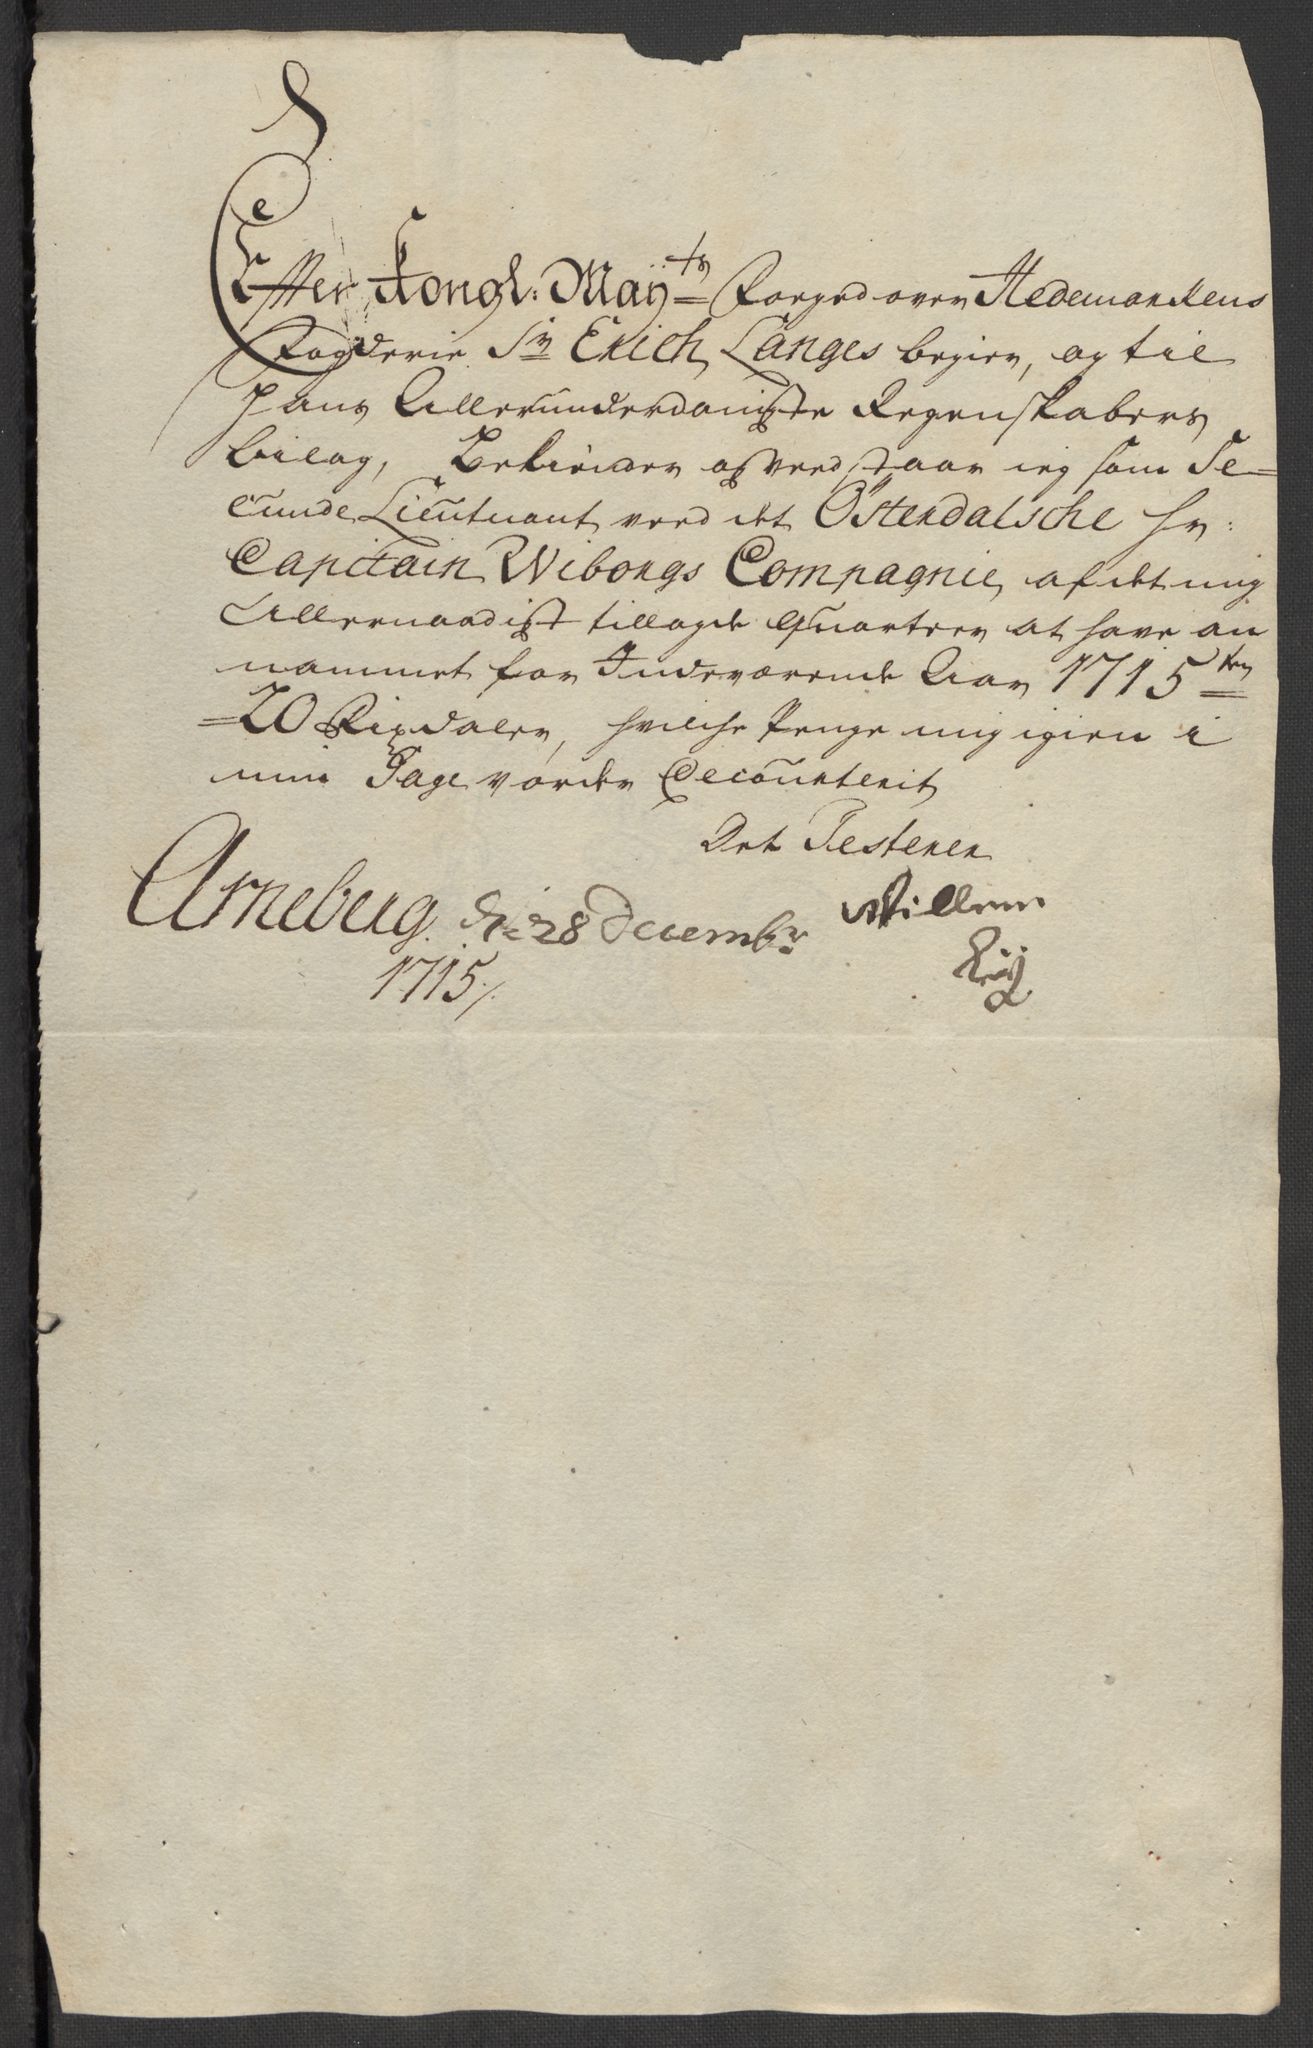 Effter Kongl: May:ts Foeged over Hedemarckens
Fogderie Sr Erich Langes begier, og til
Hans Allerunderdanigste Regenskabers
bilag, Bekiender og ved staar ieg som Se=
cunde Lieutnant ved det Österdalsche Hr:
Capitain Wiborgs Compagnie, af det mig
Allernaadigst tillagde Quarteer at have an
nammet for Indeværende Aar 1715ten
=20 Rixdaler, hvilche Penge mig igien i
min Gage vorder Decourterit
Det Testerer
Arneberg. d. 28 Decembr Willum
1715 ./.